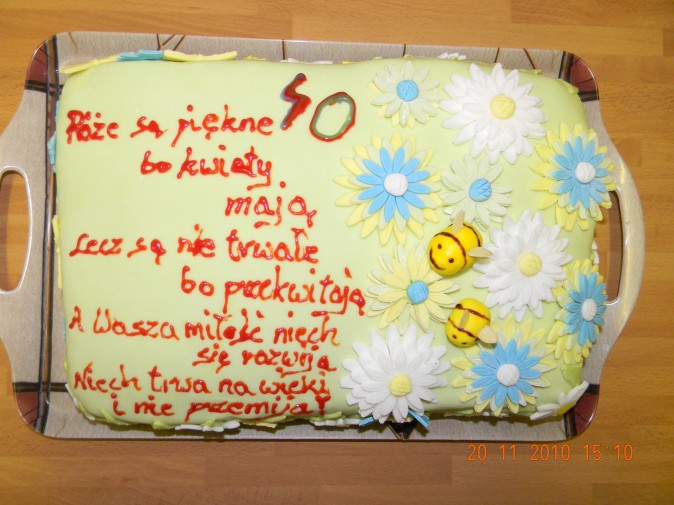 50
Róże są piękne
bo kwiaty
mają
Lecz są nie trwałe
bo przekwitają
A Wasza miłość niech
się rozwija
Niech trwa na wieki
i nie przemija!
20 11 2010 15:10